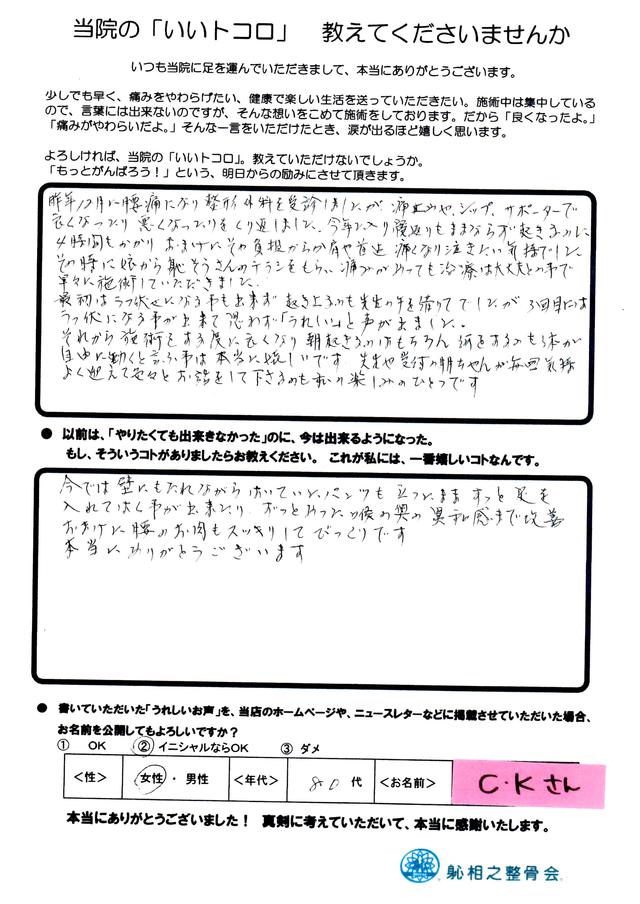 当院の「いいトコロ」 教えてくださいませんか
いつも当院に足を運んでいただきまして、本当にありがとうございます。
少しでも早く、痛みをやわらげたい、健康で楽しい生活を送っていただきたい。施術中は集中している
ので、言葉には出来ないのですが、そんな想いをこめて施術をしております。だから「良くなったよ。」
「痛みがやわらいだよ。」そんな一言をいただけたとき、涙が出るほど嬉しく思います。
よろしければ、当院の「いいトコロ」。教えていただけないでしょうか。
「もっとがんばろう！」という、明日からの励みにさせて頂きます。
昨年12月に腰痛になり整形外科を受診しましたが 痛止めや、シップ、サポーターで
良くなったり悪くなったりをくり返しました、今年に入り寝返りもままならず起き上るのに
4時間もかかり おまけにその負担からか肩や首迄痛くなり泣きたい気持でした
その時に娘から恥そうさんのチラシをもらい、痛みがあっても治療は大丈夫との事で
早々に施術していただきました。
最初はうつ伏せになる事も出来ず 起き上るのも先生の手を借りてでしたが 3回目には
うつ伏になる事が出来て思わず「うれしい」と声が出ました。
それから施術をする度に良くなり 朝起きるのはもちろん 何をするのも体が
自由に動くと言う事は本当に嬉しいです 先生や受付の 朋ちゃんが毎回気持
よく迎えて色々とお話をして下さるのも私の楽しみのひとつです
● 以前は、「やりたくても出来きなかった」のに、今は出来るようになった。
もし、そういうコトがありましたらお教えください。 これが私には、一番嬉しいコトなんです。
今では壁にもたれながらはいていたパンツも立ったまますっと足を
入れてはく事が出来たり ずっとあった喉の奥の異和感まで改善
おまけに腰のお肉もスッキリしてびっくりです
本当にありがとうございます
● 書いていただいた「うれしいお声」を、当店のホームページや、ニュースレターなどに掲載させていただいた場合、
お名前を公開してもよろしいですか？
① OK ② イニシャルならOK ③ ダメ
＜性＞ 女性 ・ 男性 ＜年代＞ 80 代 ＜お名前＞ C・Kさん
本当にありがとうございました！ 真剣に考えていただいて、本当に感謝いたします。
恥相之整骨会